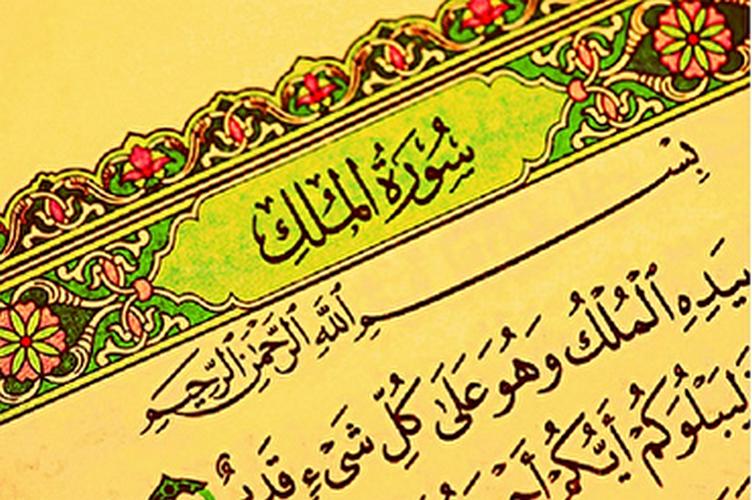 سُورَةُ المُلْكِ
بِسْمِ اللَّهِ الرَّحْمَٰنِ الرَّحِيمِ
بِيَدِهِ ٱلْمُلْكُ وَهُوَ عَلَىٰ كُلِّ شَيْءٍ قَدِيرٌ
لِيَبْلُوَكُمْ أَيُّكُمْ